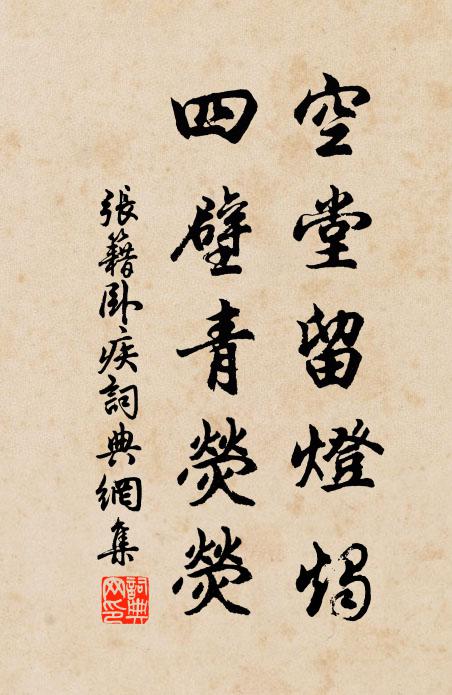 空堂留燈燭
四壁青熒熒
張籍臥疾詞典網集
詞典网印